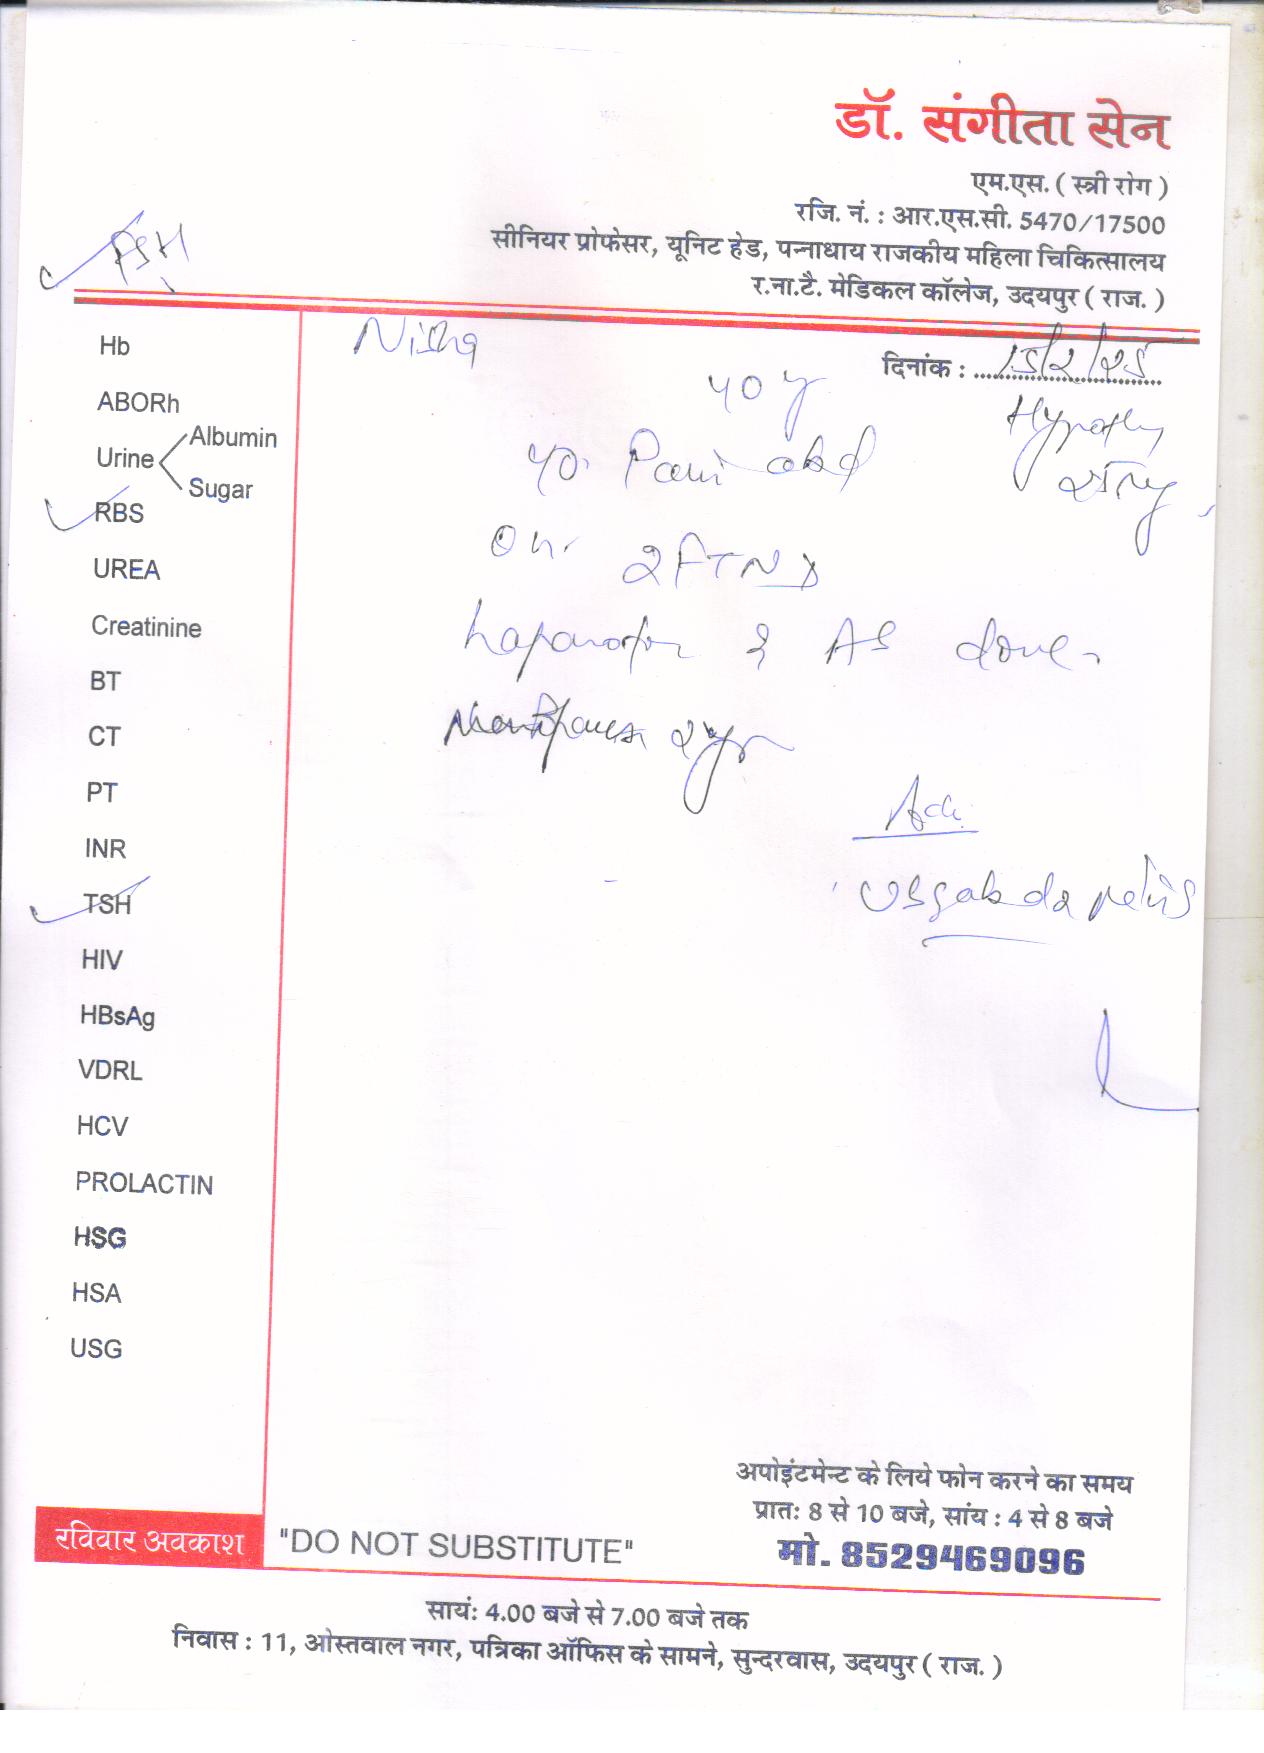 डॉ. संगीता सेन
एम.एस. ( स्त्री रोग )
रजि. नं. : आर.एस.सी. 5470/17500
सीनियर प्रोफेसर, यूनिट हेड, पन्नाधाय राजकीय महिला चिकित्सालय
र.ना.टै. मेडिकल कॉलेज, उदयपुर ( राज. )
FSH
Hb
ABORh
Urine Albumin
Sugar
RBS
UREA
Creatinine
BT
CT
PT
INR
TSH
HIV
HBsAg
VDRL
HCV
PROLACTIN
HSG
HSA
USG
Nisha
दिनांक : 15/2/25
40 y
Pain abd
2 FTND
AS done
2 yr
Adv.
pelvis
अपोइंटमेन्ट के लिये फोन करने का समय
प्रातः 8 से 10 बजे, सांय : 4 से 8 बजे
मो. 8529469096
रविवार अवकाश
"DO NOT SUBSTITUTE"
सायं: 4.00 बजे से 7.00 बजे तक
निवास : 11, ओस्तवाल नगर, पत्रिका ऑफिस के सामने, सुन्दरवास, उदयपुर ( राज. )